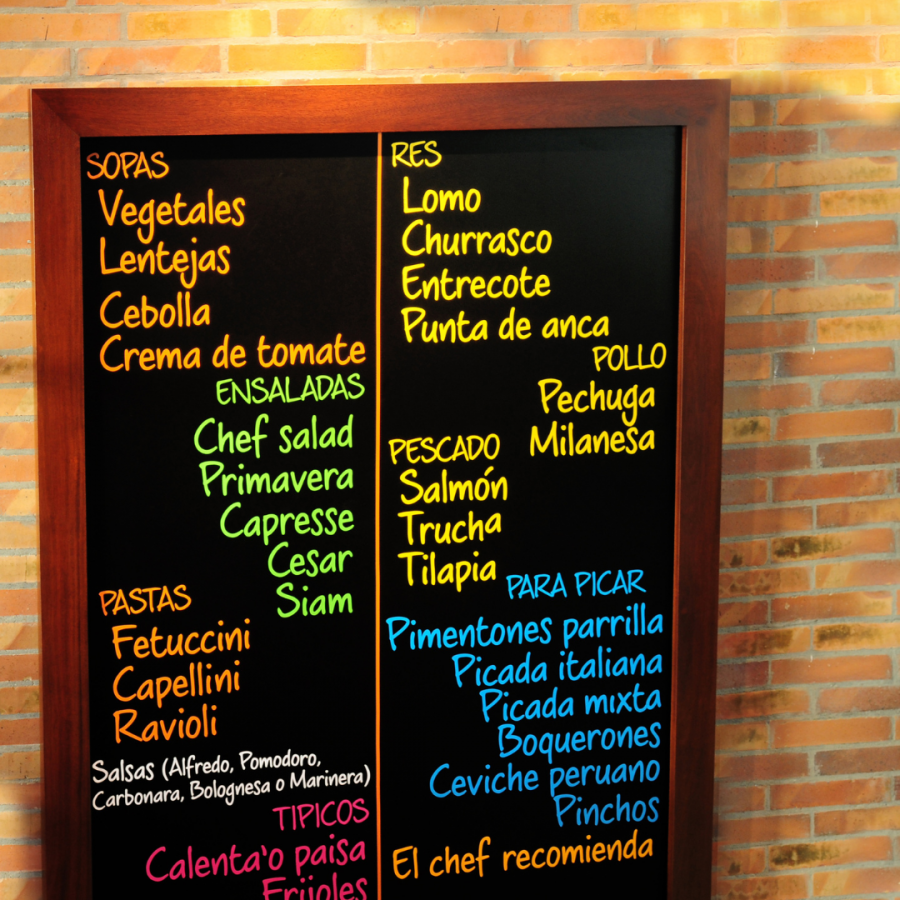 SOPAS
Vegetales
Lentejas
Cebolla
Crema de tomate
ENSALADAS
Chef salad
Primavera
Capresse
Cesar
Siam
PASTAS
Fetuccini
Capellini
Ravioli
Salsas (Alfredo, Pomodoro,
Carbonara, Bolognesa o Marinera)
TIPICOS
Calenta'o paisa
Frijoles
RES
Lomo
Churrasco
Entrecote
Punta de anca
POLLO
Pechuga
Milanesa
PESCADO
Salmón
Trucha
Tilapia
PARA PICAR
Pimentones parrilla
Picada italiana
Picada mixta
Boquerones
Ceviche peruano
Pinchos
El chef recomienda